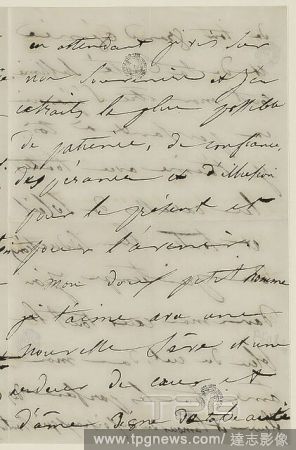 en attendant je vis sur
mon souvenir et j'en
extrais le plus possible
de patience, de confiance
d'espérance et d'illusion
pour le présent et
pour l'avenir
mon doux petit homme
je t'aime avec une
nouvelle et une
de cœur et
d'âme digne de ta beauté
www.tpgnews.com/ 達志影像